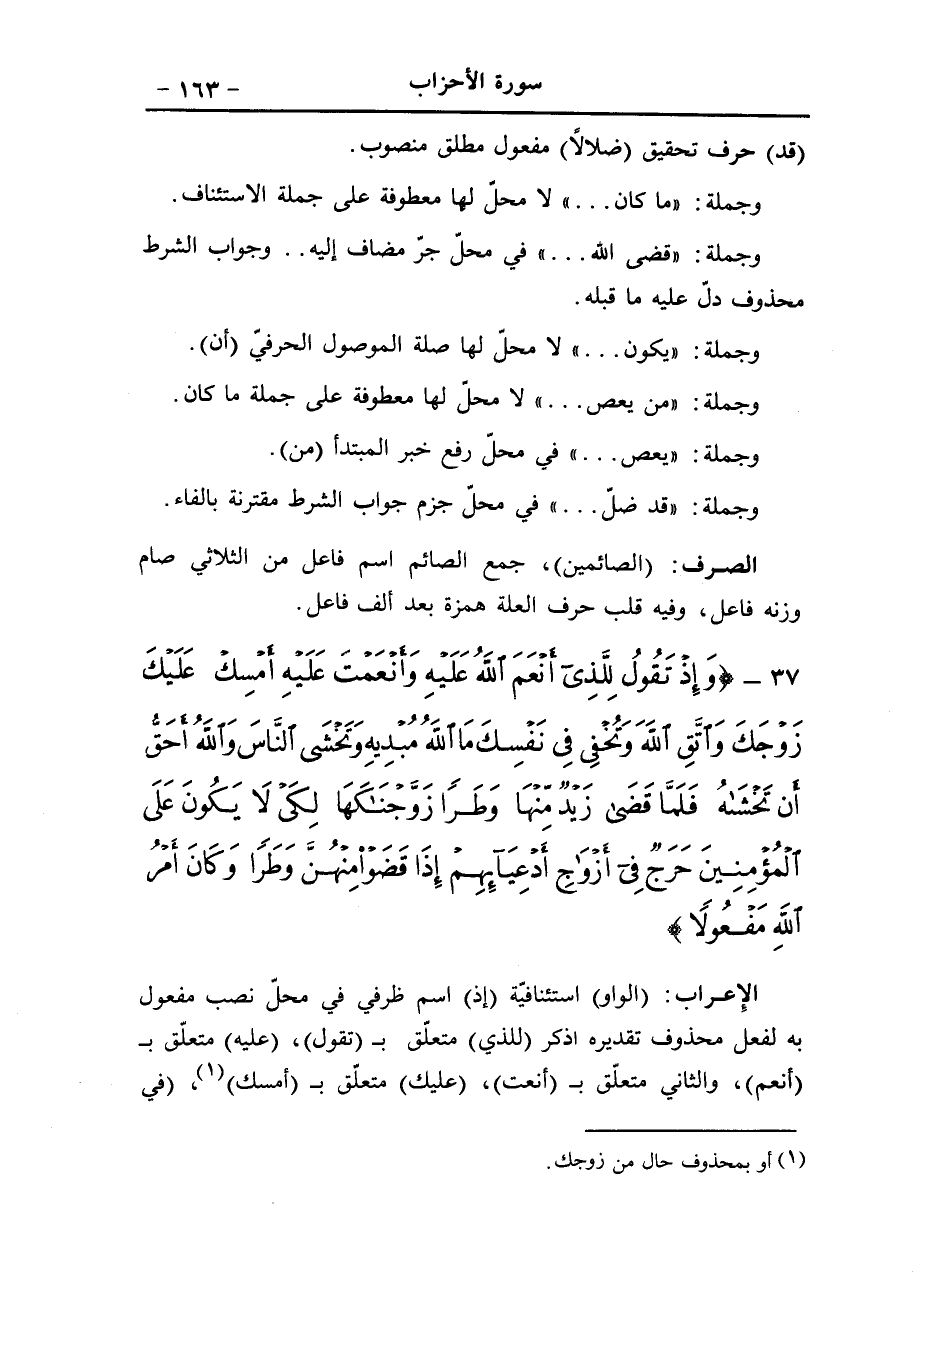 سورة الأحزاب - ١٦٣ -
(قد) حرف تحقيق (ضلالاً) مفعول مطلق منصوب.
وجملة: «ما كان...» لا محلّ لها معطوفة على جملة الاستئناف.
وجملة: «قضى الله ...» في محلّ جرّ مضاف إليه.. وجواب الشرط
محذوف دلّ عليه ما قبله.
وجملة: «يكون...» لا محلّ لها صلة الموصول الحرفيّ (أن).
وجملة: «من يعص...» لا محلّ لها معطوفة على جملة ما كان.
وجملة: «يعص...» في محلّ رفع خبر المبتدأ (من).
وجملة: «قد ضلّ...» في محلّ جزم جواب الشرط مقترنة بالفاء.
الصرف: (الصائمين)، جمع الصائم اسم فاعل من الثلاثي صام
وزنه فاعل، وفيه قلب حرف العلة همزة بعد ألف فاعل.
٣٧ - ﴿وَإِذْ تَقُولُ لِلَّذِىٓ أَنْعَمَ ٱللَّهُ عَلَيْهِ وَأَنْعَمْتَ عَلَيْهِ أَمْسِكْ عَلَيْكَ
زَوْجَكَ وَٱتَّقِ ٱللَّهَ وَتُخْفِى فِى نَفْسِكَ مَا ٱللَّهُ مُبْدِيهِ وَتَخْشَى ٱلنَّاسَ وَٱللَّهُ أَحَقُّ
أَن تَخْشَىٰهُ فَلَمَّا قَضَىٰ زَيْدٌ مِّنْهَا وَطَرًا زَوَّجْنَٰكَهَا لِكَىْ لَا يَكُونَ عَلَى
ٱلْمُؤْمِنِينَ حَرَجٌ فِىٓ أَزْوَٰجِ أَدْعِيَآئِهِمْ إِذَا قَضَوْا۟ مِنْهُنَّ وَطَرًا وَكَانَ أَمْرُ
ٱللَّهِ مَفْعُولًا﴾
الإعراب: (الواو) استئنافيّة (إذ) اسم ظرفي في محلّ نصب مفعول
به لفعل محذوف تقديره اذكر (للذي) متعلّق بـ (تقول)، (عليه) متعلّق بـ
(أنعم)، والثاني متعلّق بـ (أنعت)، (عليك) متعلّق بـ (أمسك)(١)، (في
(١) أو بمحذوف حال من زوجك.